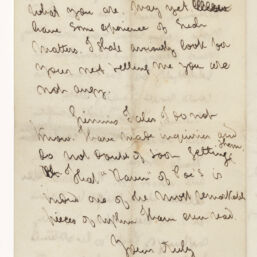 what you are. May yet
have some experience of such
matters. I shall anxiously look for
your next telling me you are
not angry.
I do not
know. I have made inquiries and
do not doubt of soon getting them
That "Raven" of Poe's is
indeed one of the most remarkable
pieces of rhythm I have ever read.
Yours truly